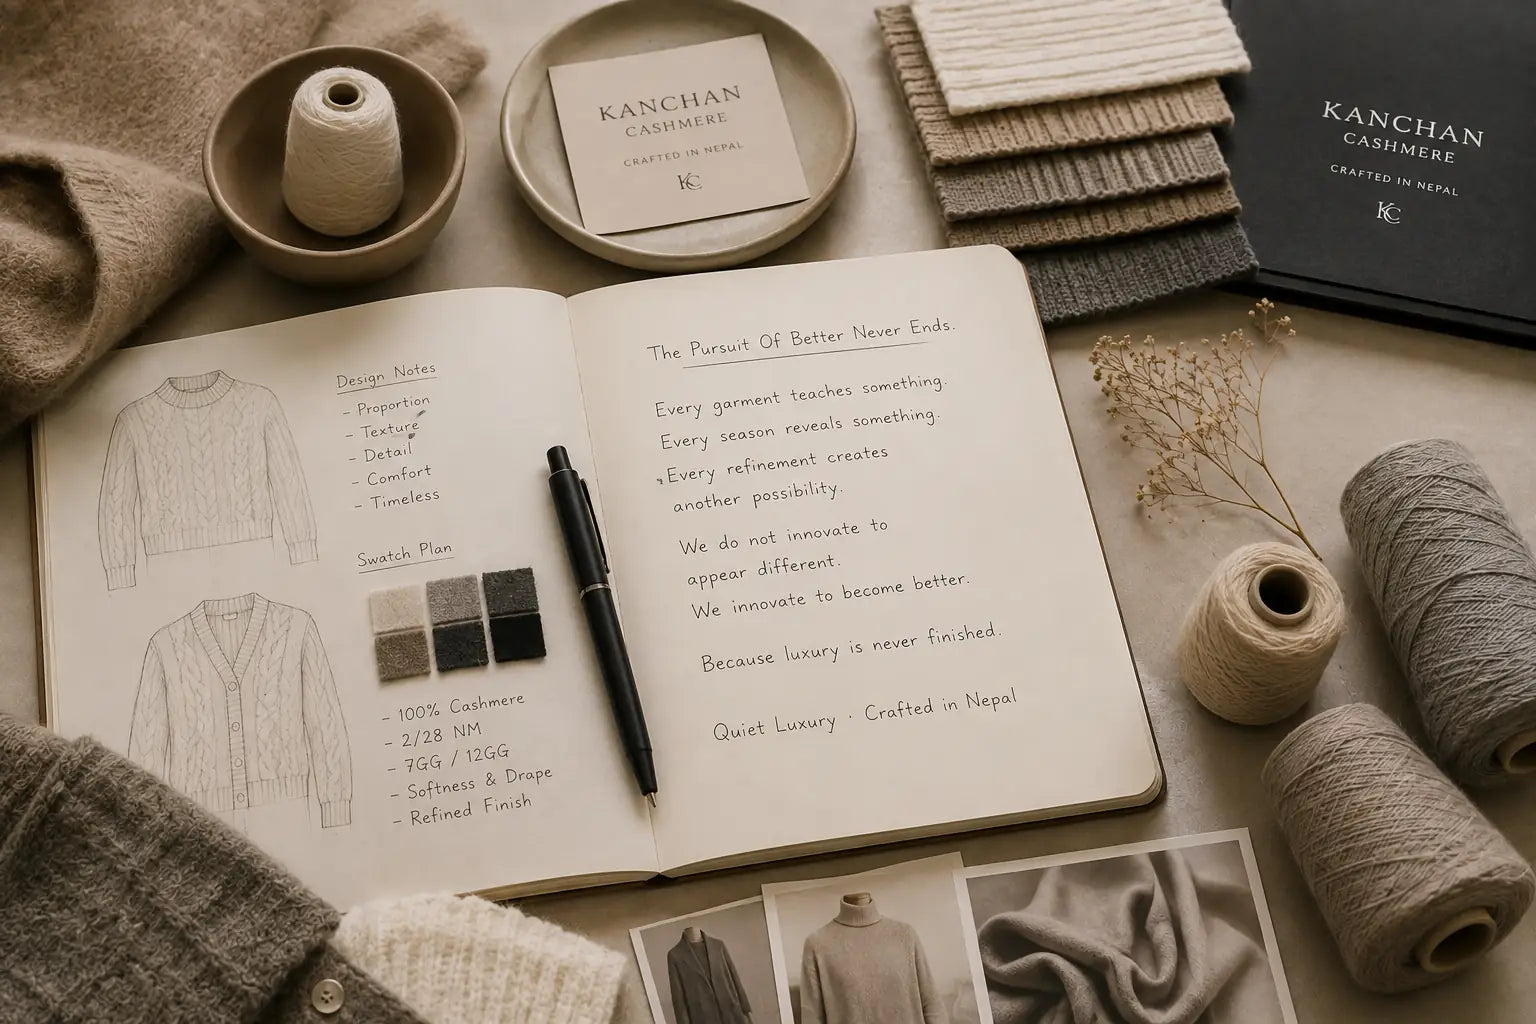 KANCHAN
CASHMERE
CRAFTED IN NEPAL
KC
KANCHAN
CASHMERE
CRAFTED IN NEPAL
KC
Design Notes
- Proportion
- Texture
- Detail
- Comfort
- Timeless
Swatch Plan
- 100% Cashmere
- 2/28 NM
- 7GG / 12GG
- Softness & Drape
- Refined Finish
The Pursuit Of Better Never Ends.
Every garment teaches something.
Every season reveals something.
Every refinement creates
another possibility.
We do not innovate to
appear different.
We innovate to become better.
Because luxury is never finished.
Quiet Luxury · Crafted in Nepal